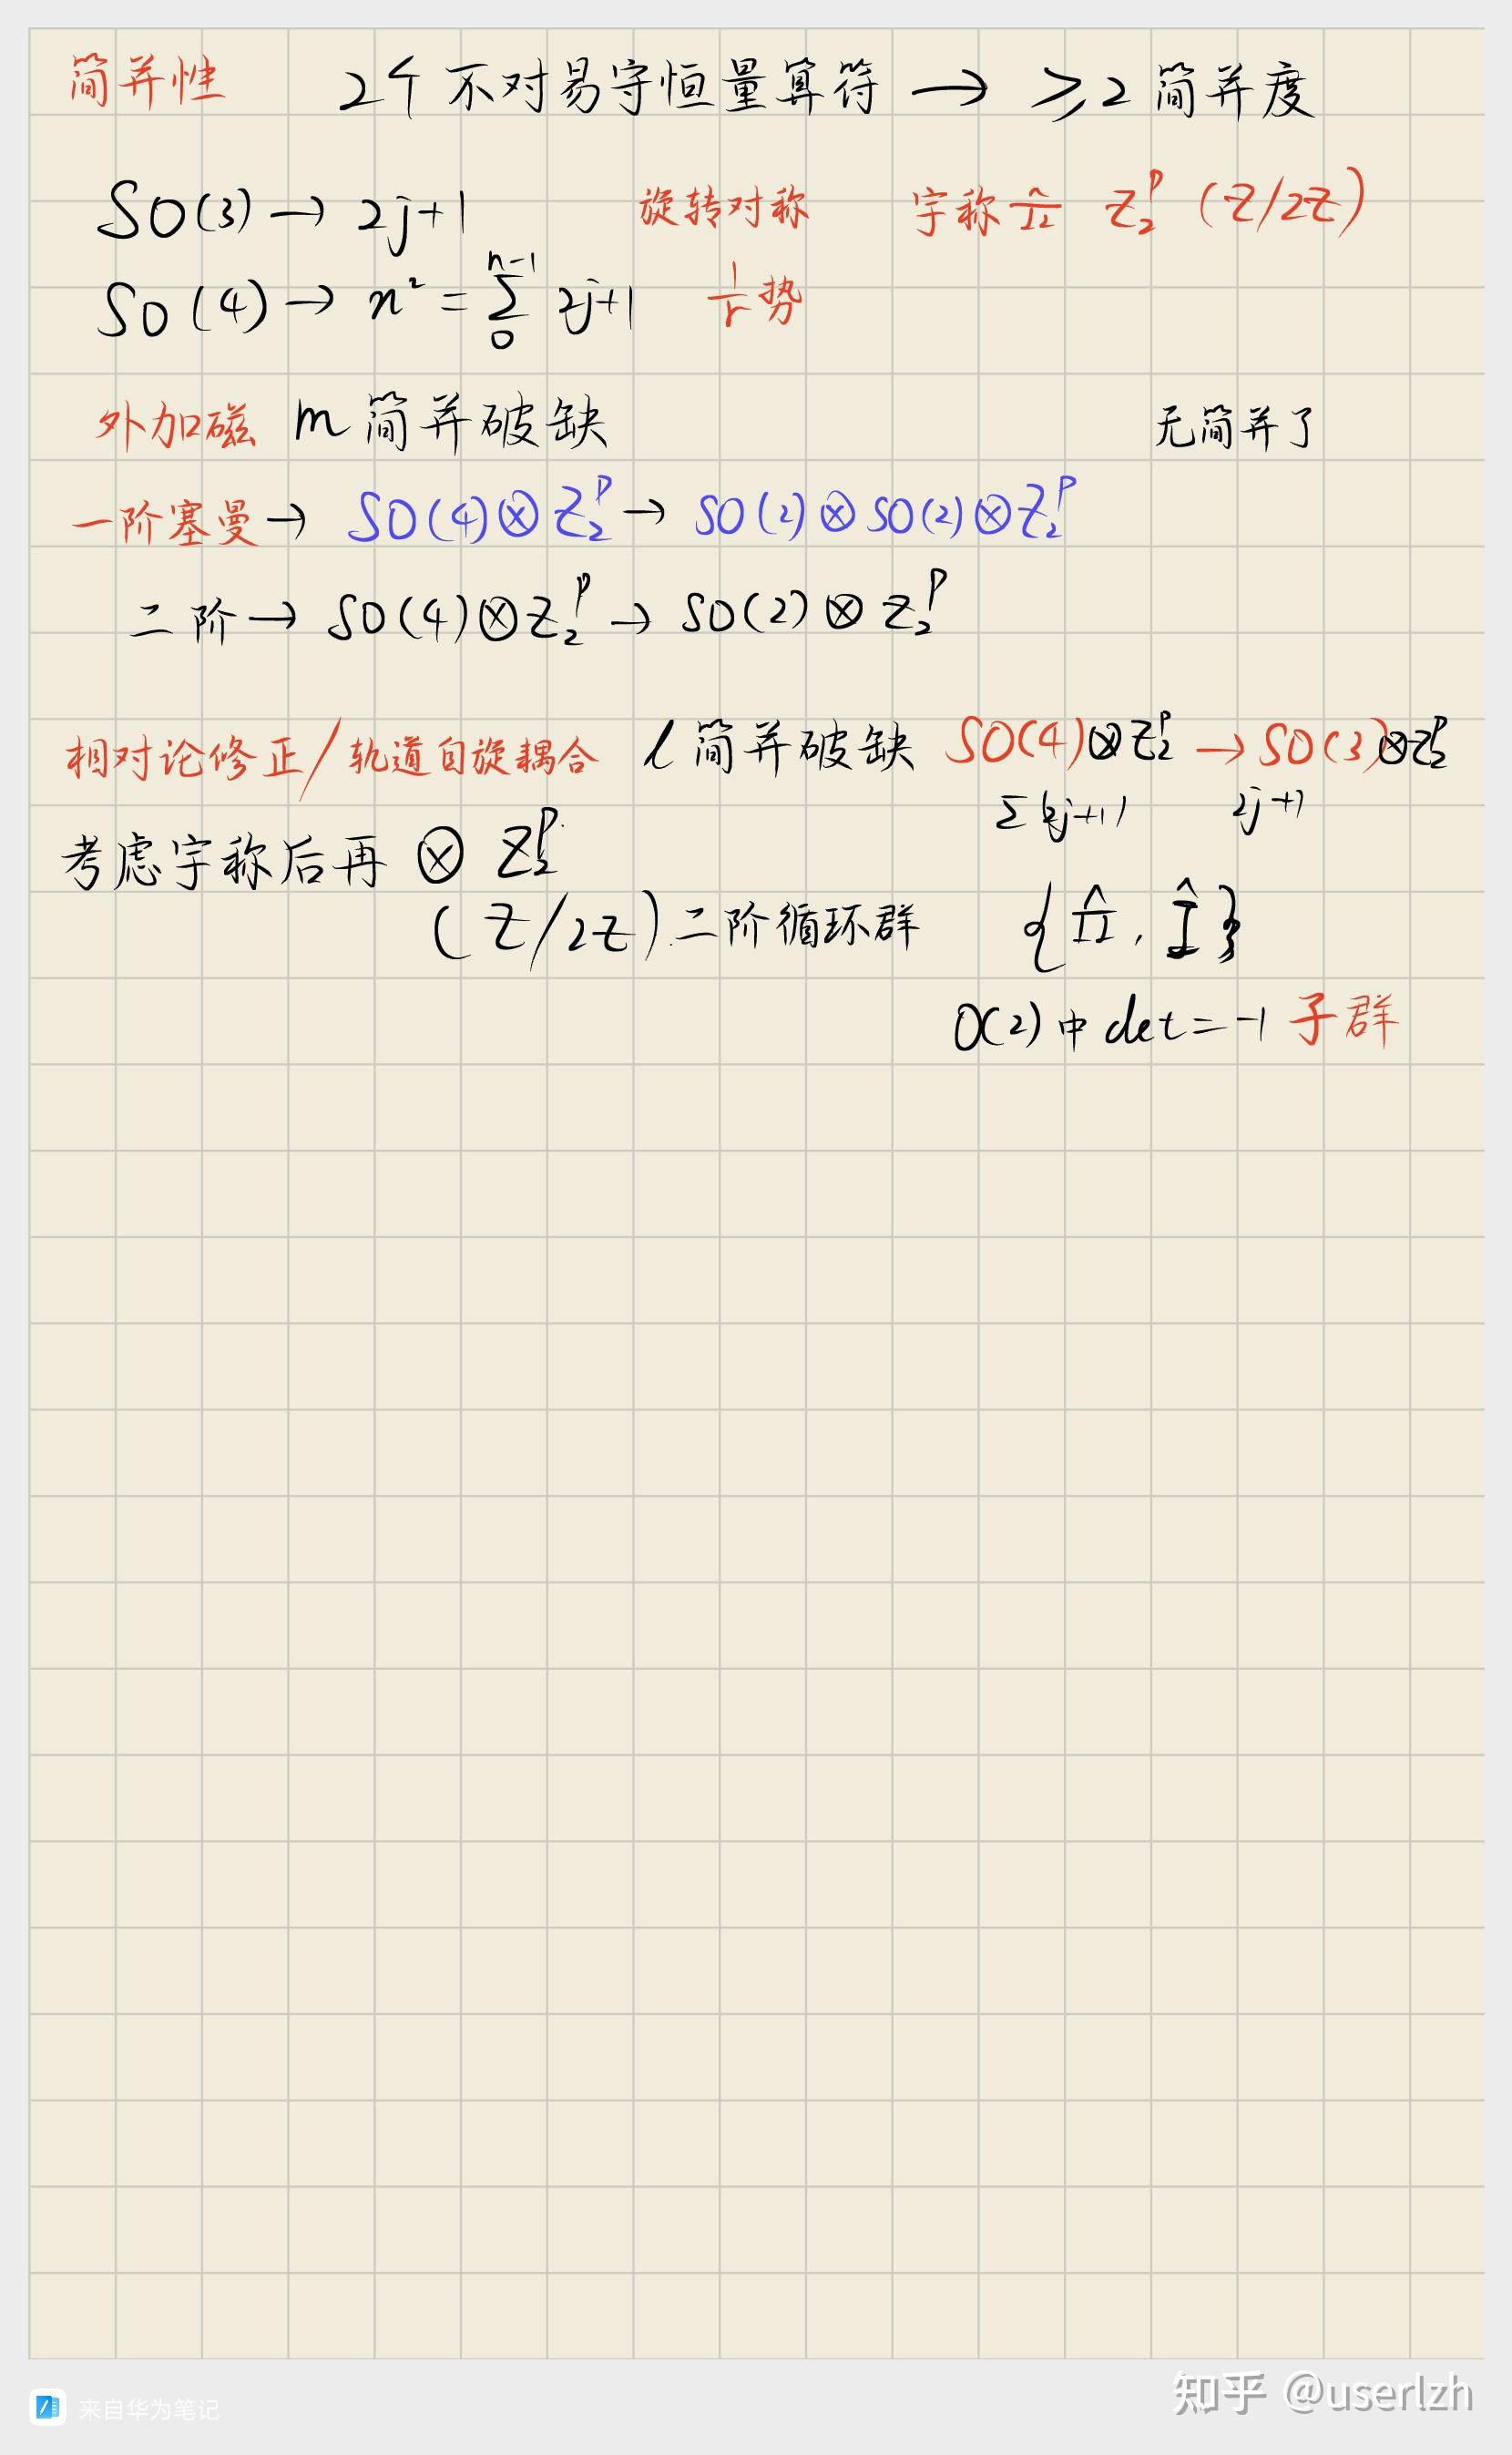 简并性 2个不对易守恒量算符 → ≥2简并度
SO(3) → 2j+1 旋转对称 宇称 Π̂ Z₂ᵖ (Z/2Z)
SO(4) → n² = Σ₀ⁿ⁻¹ 2j+1 1/r 势
外加磁 m简并破缺 无简并了
一阶塞曼 → SO(4)⊗Z₂ᵖ → SO(2)⊗SO(2)⊗Z₂ᵖ
二阶 → SO(4)⊗Z₂ᵖ → SO(2)⊗Z₂ᵖ
相对论修正/轨道自旋耦合 l简并破缺 SO(4)⊗Z₂ᵖ → SO(3)⊗Z₂ᵖ
Σ(2j+1) 2j+1
考虑宇称后再 ⊗ Z₂ᵖ
(Z/2Z) 二阶循环群 {Π̂, Î}
O(2)中 det=-1 子群
来自华为笔记
知乎 @userlzh